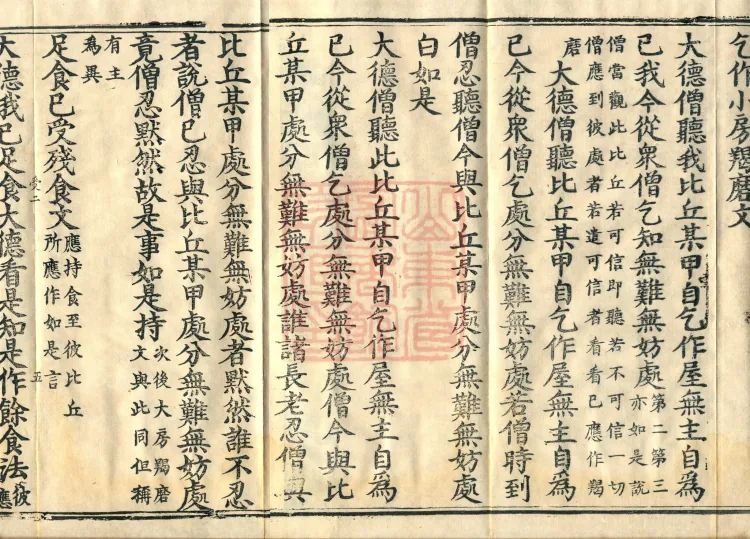 乞作小房羯磨文
大德僧聽我比丘某甲自乞作屋無主自為
己我今從衆僧乞知無難無妨處第二第三亦如是說
僧當觀此比丘若可信即聽若不可信一切
僧應到彼處看若遣可信者看看已應作羯
磨
大德僧聽此比丘某甲自乞作屋無主自為
己今從衆僧乞處分無難無妨處若僧時到
僧忍聽僧今與比丘某甲處分無難無妨處
白如是
大德僧聽此比丘某甲自乞作屋無主自為
己今從衆僧乞處分無難無妨處僧今與比
丘某甲處分無難無妨處誰諸長老忍僧與
比丘某甲處分無難無妨處者默然誰不忍
者說僧已忍與比丘某甲處分無難無妨處
竟僧忍默然故是事如是持次後大房羯磨文與此同但稱
有主
為異
足食已受殘食文應持食至彼比丘所應作如是言
大德我已足食大德看是知是作餘食法彼應